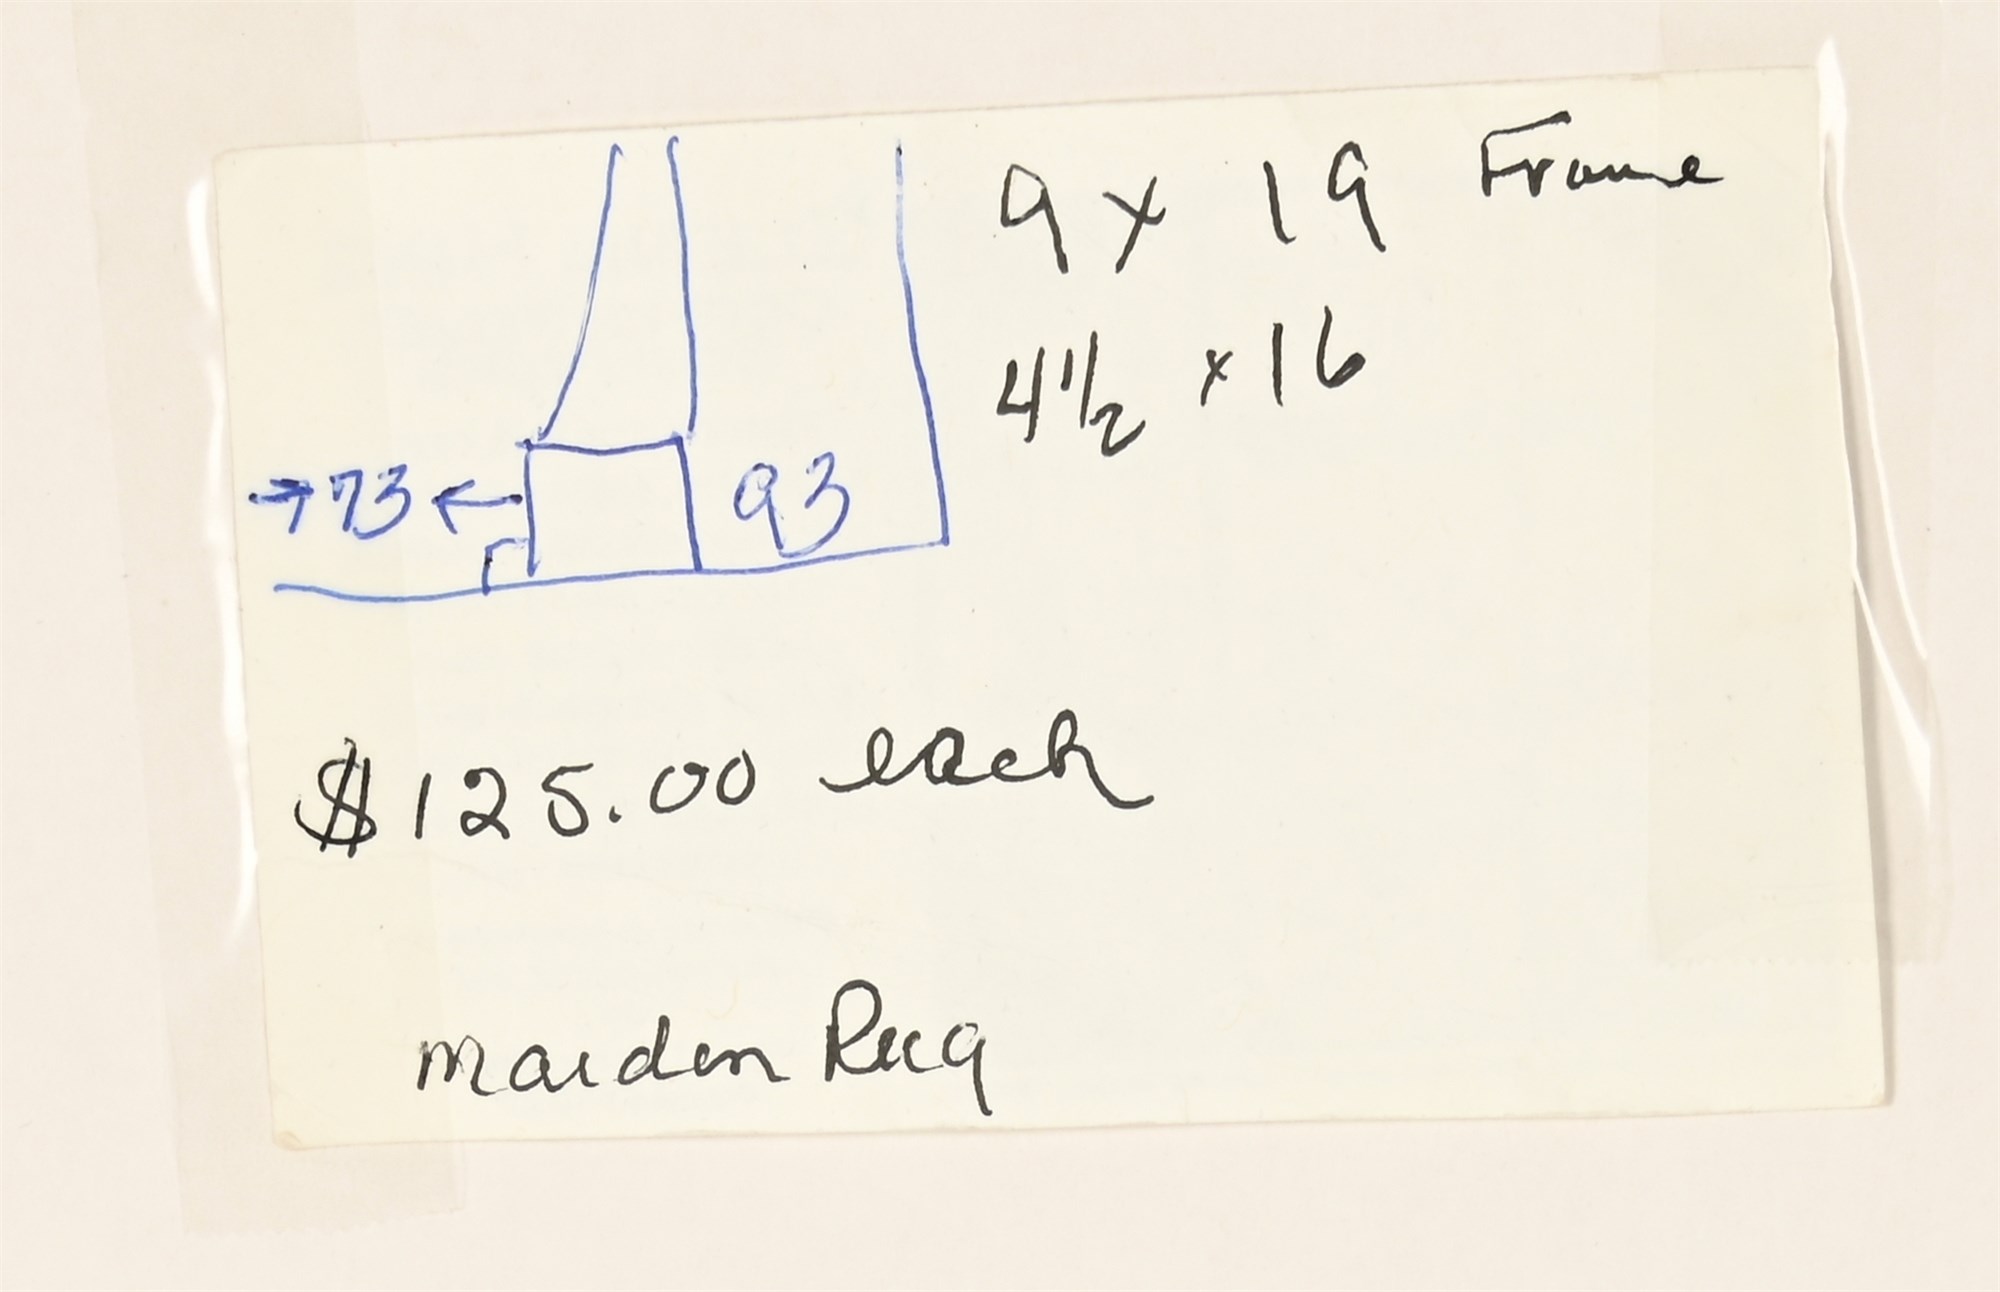 9 x 19 Frame
4 1/2 x 16
73
93
$125.00 each
maiden Rug